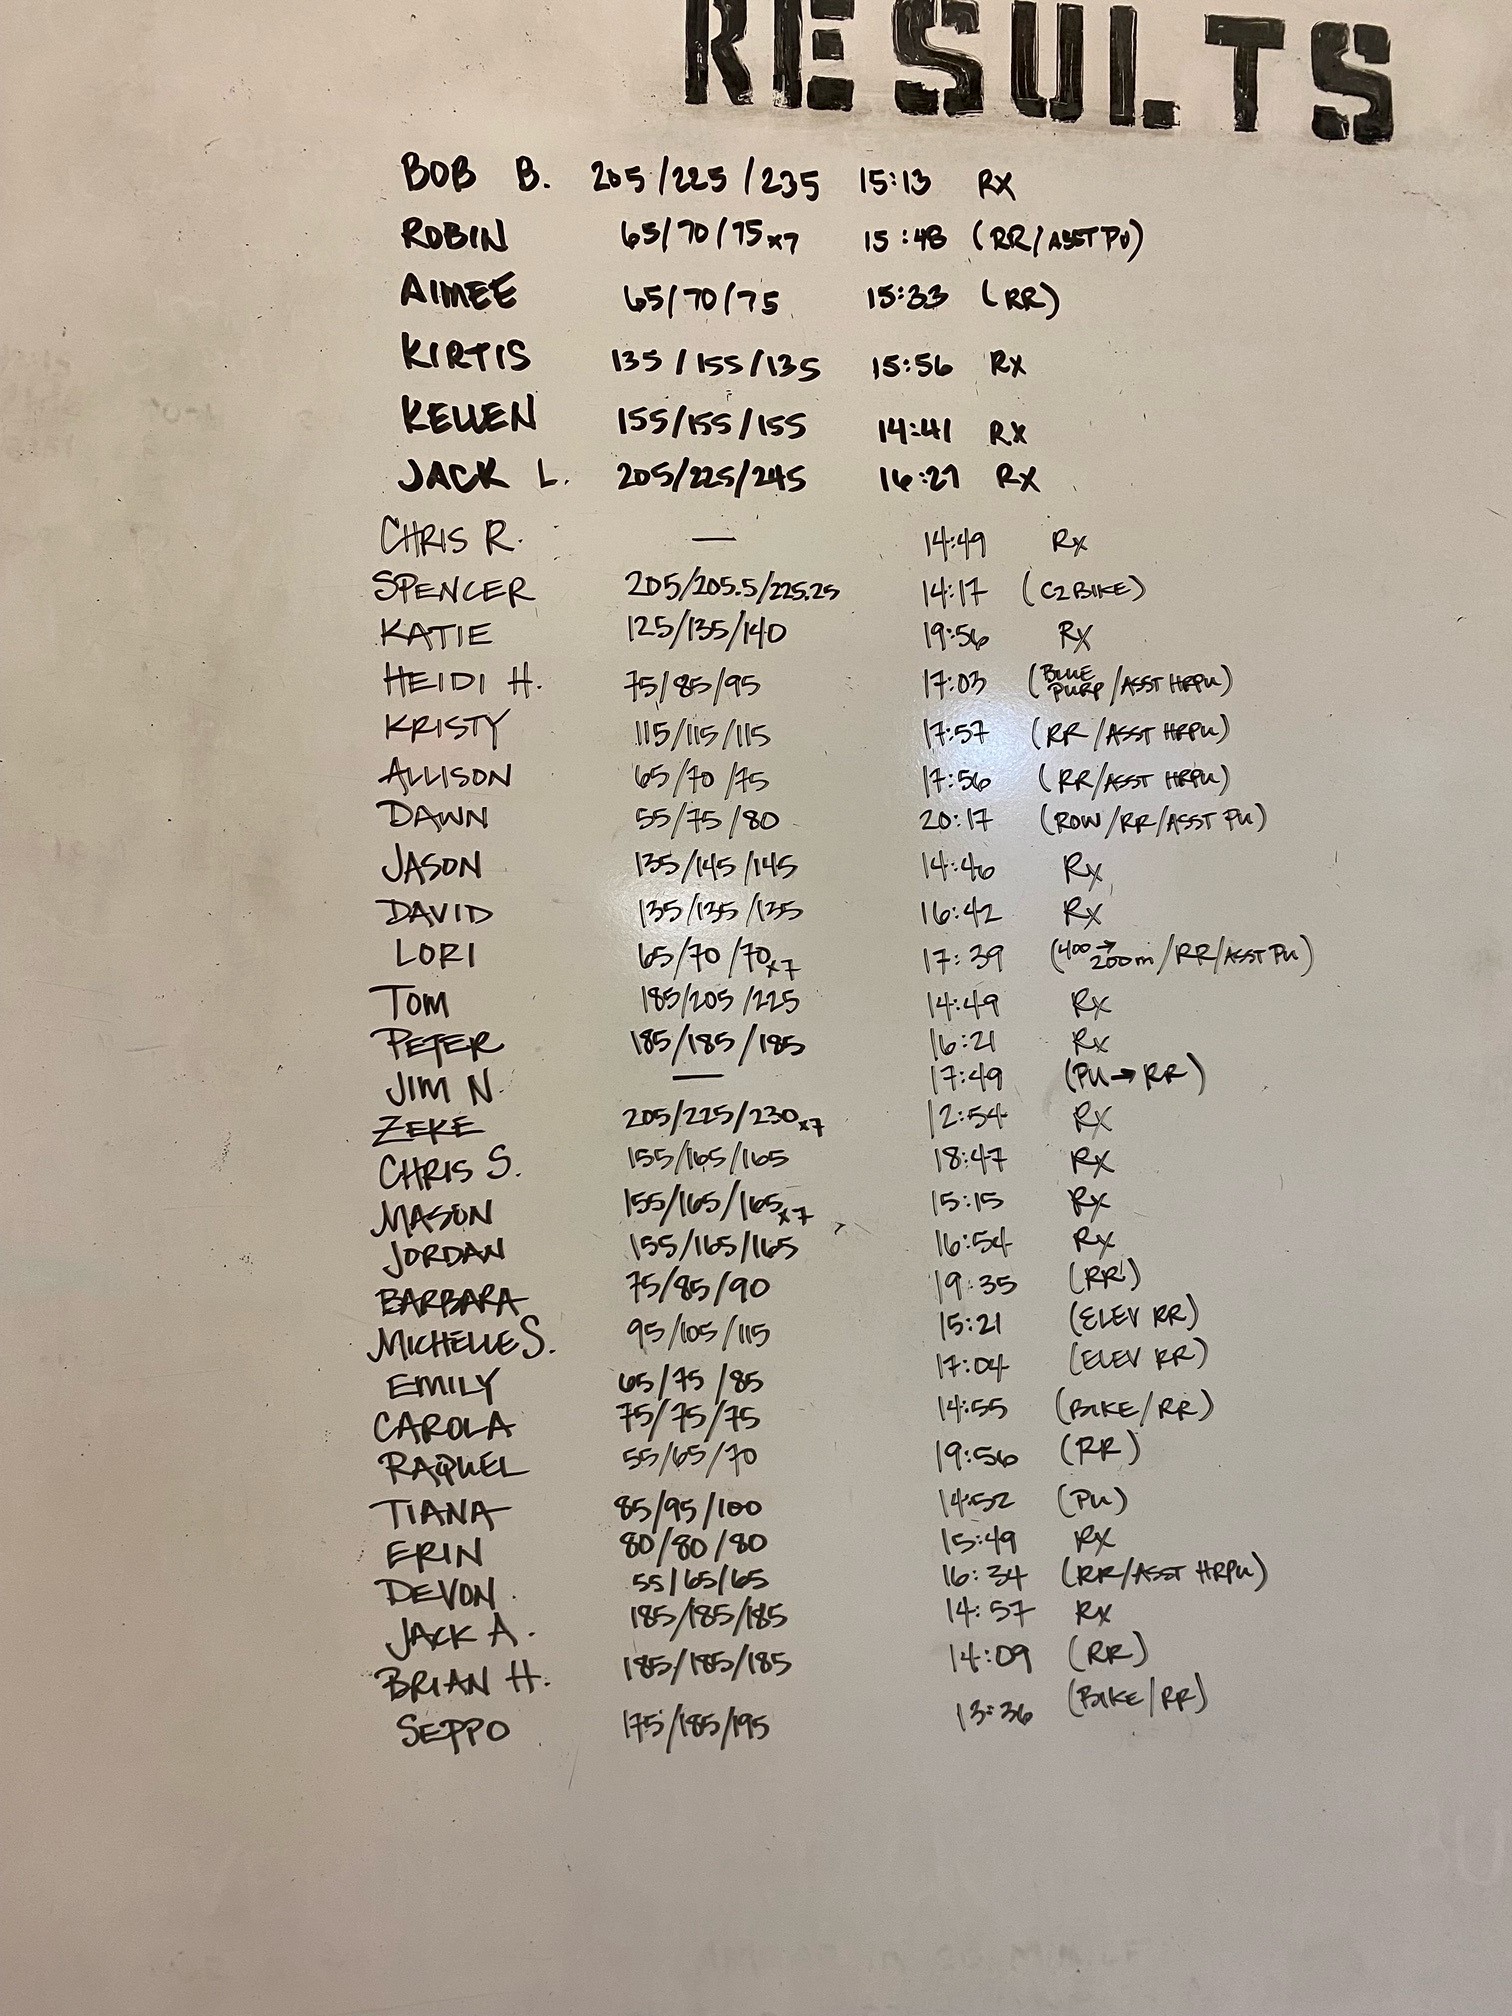 RESULTS
BOB B. 205/225/235 15:13 RX
ROBIN 65/70/75x7 15:48 (RR/ASST PU)
AIMEE 65/70/75 15:33 (RR)
KIRTIS 135/155/135 15:56 RX
KELLEN 155/155/155 14:41 RX
JACK L. 205/225/245 16:27 RX
CHRIS R. — 14:49 RX
SPENCER 205/205.5/225.25 14:17 (C2 BIKE)
KATIE 125/135/140 19:56 RX
HEIDI H. 75/85/95 17:03 (BLUE PURP/ASST HRPU)
KRISTY 115/115/115 17:57 (RR/ASST HRPU)
ALLISON 65/70/75 17:56 (RR/ASST HRPU)
DAWN 55/75/80 20:17 (ROW/RR/ASST PU)
JASON 135/145/145 14:46 RX
DAVID 135/135/135 16:42 RX
LORI 65/70/70x7 17:39 (400→200m/RR/ASST PU)
TOM 185/205/225 14:49 RX
PETER 185/185/185 16:21 RX
JIM N. — 17:49 (PU→RR)
ZEKE 205/225/230x7 12:54 RX
CHRIS S. 155/165/165 18:47 RX
MASON 155/165/165x7 15:15 RX
JORDAN 155/165/165 16:54 RX
BARBARA 75/85/90 19:35 (RR)
MICHELLE S. 95/105/115 15:21 (ELEV RR)
EMILY 65/75/85 17:04 (ELEV RR)
CAROLA 75/75/75 14:55 (BIKE/RR)
RAQUEL 55/65/70 19:56 (RR)
TIANA 85/95/100 14:52 (PU)
ERIN 80/80/80 15:49 RX
DEVON 55/65/65 16:34 (RR/ASST HRPU)
JACK A. 185/185/185 14:57 RX
BRIAN H. 185/185/185 14:09 (RR)
SEPPO 175/185/195 13:36 (BIKE/RR)